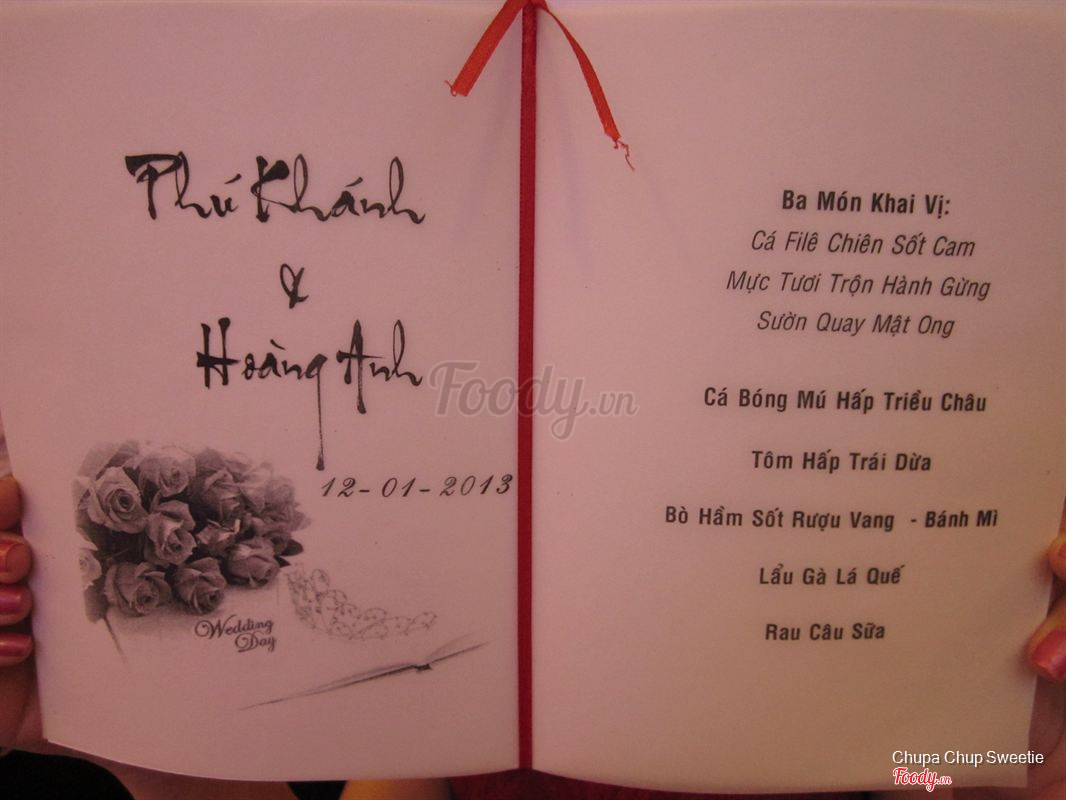 Phú Khánh
&
Hoàng Anh
12-01-2013
Wedding
Day
Ba Món Khai Vị:
Cá Filê Chiên Sốt Cam
Mực Tươi Trộn Hành Gừng
Sườn Quay Mật Ong
Cá Bóng Mú Hấp Triều Châu
Tôm Hấp Trái Dừa
Bò Hầm Sốt Rượu Vang - Bánh Mì
Lẩu Gà Lá Quế
Rau Câu Sữa
Foody.vn
Chupa Chup Sweetie
Foody.vn